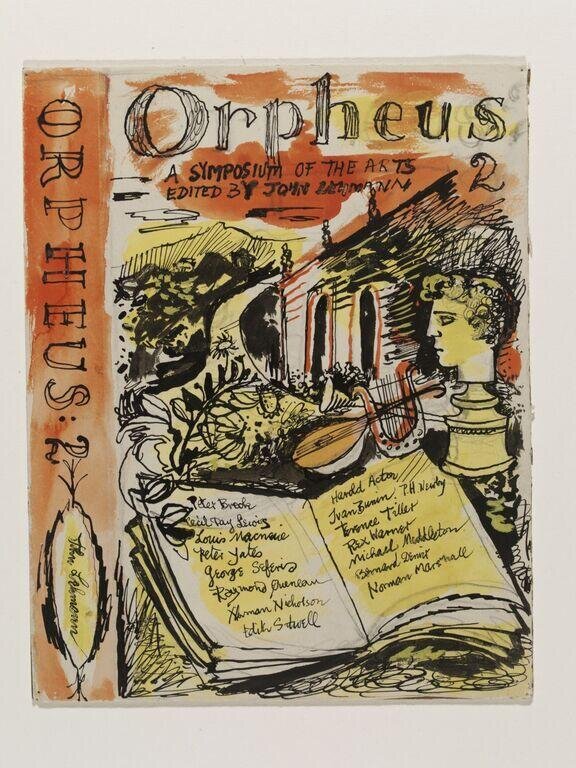 ORPHEUS: 2
John Lehmann
Orpheus
2
A SYMPOSIUM OF THE ARTS
EDITED BY JOHN LEHMANN
Peter Brook
Cecil Day Lewis
Louis Macneice
Peter Yates
George Seferis
Raymond Queneau
Norman Nicholson
Edith Sitwell
Harold Acton
Ivan Bunin, P.H. Newby
Terence Tiller
Rex Warner
Michael Middleton
Bernard Denis
Norman Marshall